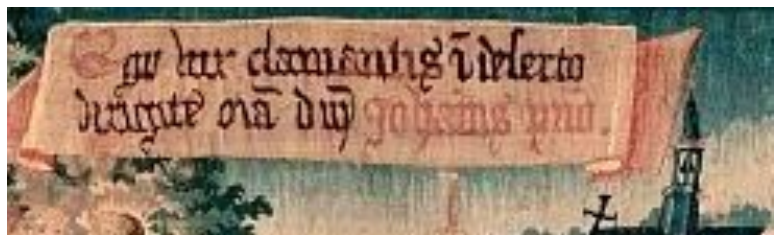 Ego vox clamantis ī deserto
dirigite viā dnī johānis prīo.